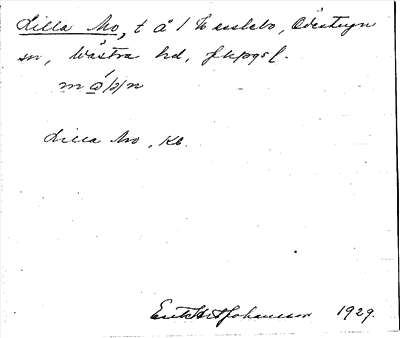 Lilla Mo, t å 1 Hesslebo, Ödestugu
sn, Västra hd, Jkpgs l.
m ó/o/n
Lilla Mo, Kb.
Erik Johansson 1929.